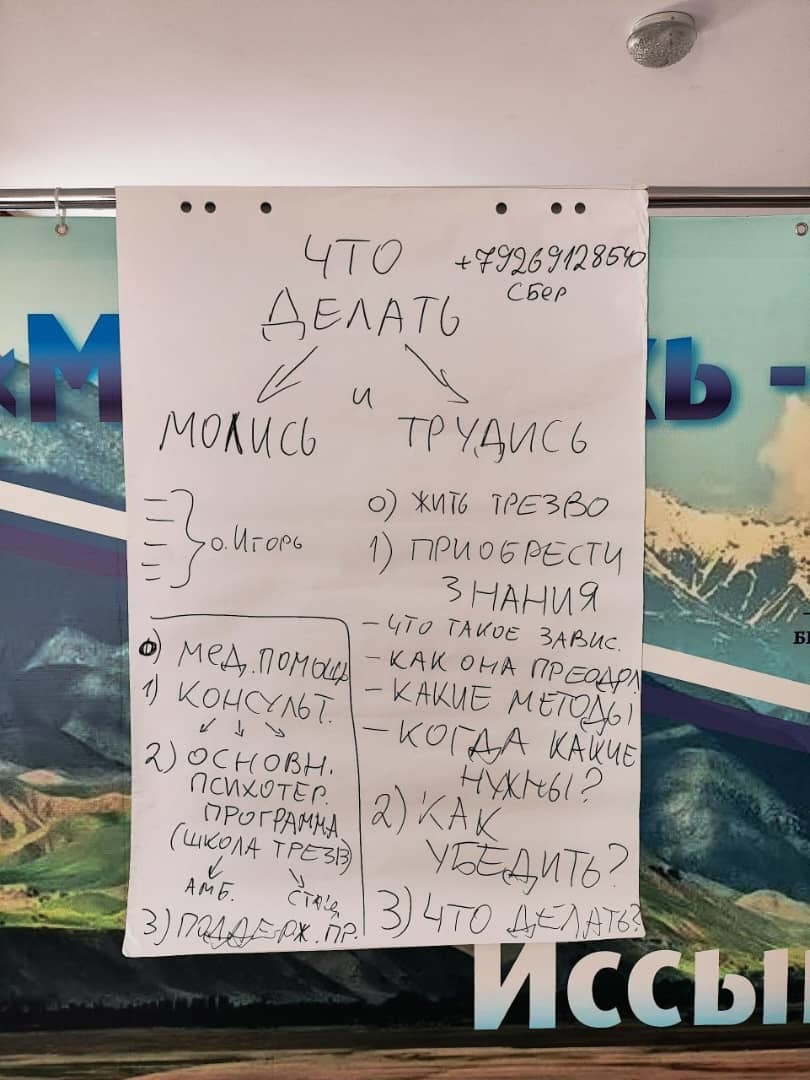 ЧТО
+79269128540
Сбер
ДЕЛАТЬ
МОЛИСЬ и ТРУДИСЬ
о. Игорь
0) ЖИТЬ ТРЕЗВО
1) ПРИОБРЕСТИ
ЗНАНИЯ
- ЧТО ТАКОЕ ЗАВИС.
- КАК ОНА ПРЕОДОЛ.
- КАКИЕ МЕТОДЫ
- КОГДА КАКИЕ
НУЖНЫ?
2) КАК
УБЕДИТЬ?
3) ЧТО ДЕЛАТЬ?
0) МЕД. ПОМОЩЬ
1) КОНСУЛЬТ.
2) ОСНОВН.
ПСИХОТЕР.
ПРОГРАММА
(ШКОЛА ТРЕЗВ)
АМБ. СТАЦ
3) ПОДДЕРЖ. ПР.
«М
ь -
Иссы